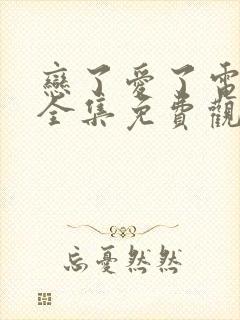 戀了愛了電
全集免費觀
忘憂然然